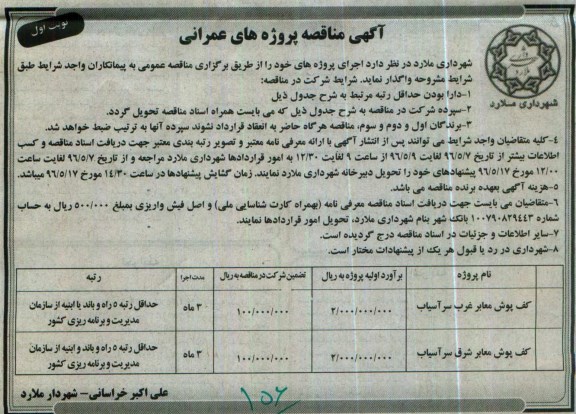 نوبت اول
آگهی مناقصه پروژه های عمرانی
شهرداری ملارد
شهرداری ملارد در نظر دارد اجرای پروژه های خود را از طریق برگزاری مناقصه عمومی به پیمانکاران واجد شرایط طبق
شرایط مشروحه واگذار نماید. شرایط شرکت در مناقصه:
۱-دارا بودن حداقل رتبه مرتبط به شرح جدول ذیل
۲-سپرده شرکت در مناقصه به شرح جدول ذیل که می بایست همراه اسناد مناقصه تحویل گردد.
۳-برندگان اول و دوم و سوم، مناقصه هرگاه حاضر به انعقاد قرارداد نشوند سپرده آنها به ترتیب ضبط خواهد شد.
۴-کلیه متقاضیان واجد شرایط می توانند پس از انتشار آگهی با ارائه معرفی نامه معتبر و تصویر رتبه بندی معتبر جهت دریافت اسناد مناقصه و کسب
اطلاعات بیشتر از تاریخ ۹۶/۵/۷ لغایت ۹۶/۵/۹ از ساعت ۹ لغایت ۱۲/۳۰ به امور قراردادها شهرداری ملارد مراجعه و از تاریخ ۹۶/۵/۷ لغایت ساعت
۱۲/۰۰ مورخ ۹۶/۵/۱۷ پیشنهادهای خود را تحویل دبیرخانه شهرداری ملارد نمایند. زمان گشایش پیشنهادها در ساعت ۱۴/۳۰ مورخ ۹۶/۵/۱۷ میباشد.
۵-هزینه آگهی بعهده برنده مناقصه می باشد.
۶-متقاضیان می بایست جهت دریافت اسناد مناقصه معرفی نامه (بهمراه کارت شناسایی ملی) و اصل فیش واریزی بمبلغ ۵۰۰/۰۰۰ ریال به حساب
شماره ۱۰۰۷۹۰۸۲۹۴۴۳ بانک شهر بنام شهرداری ملارد، تحویل امور قراردادها نمایند.
۷-سایر اطلاعات و جزئیات در اسناد مناقصه درج گردیده است.
۸-شهرداری در رد یا قبول هر یک از پیشنهادات مختار است.
نام پروژه برآورد اولیه پروژه به ریال تضمین شرکت در مناقصه به ریال مدت اجرا رتبه
کف پوش معابر غرب سرآسیاب ۲/۰۰۰/۰۰۰/۰۰۰ ۱۰۰/۰۰۰/۰۰۰ ۳ ماه حداقل رتبه ۵ راه و باند یا ابنیه از سازمان
مدیریت و برنامه ریزی کشور
کف پوش معابر شرق سرآسیاب ۲/۰۰۰/۰۰۰/۰۰۰ ۱۰۰/۰۰۰/۰۰۰ ۳ ماه حداقل رتبه ۵ راه و باند و ابنیه از سازمان
مدیریت و برنامه ریزی کشور
علی اکبر خراسانی- شهردار ملارد